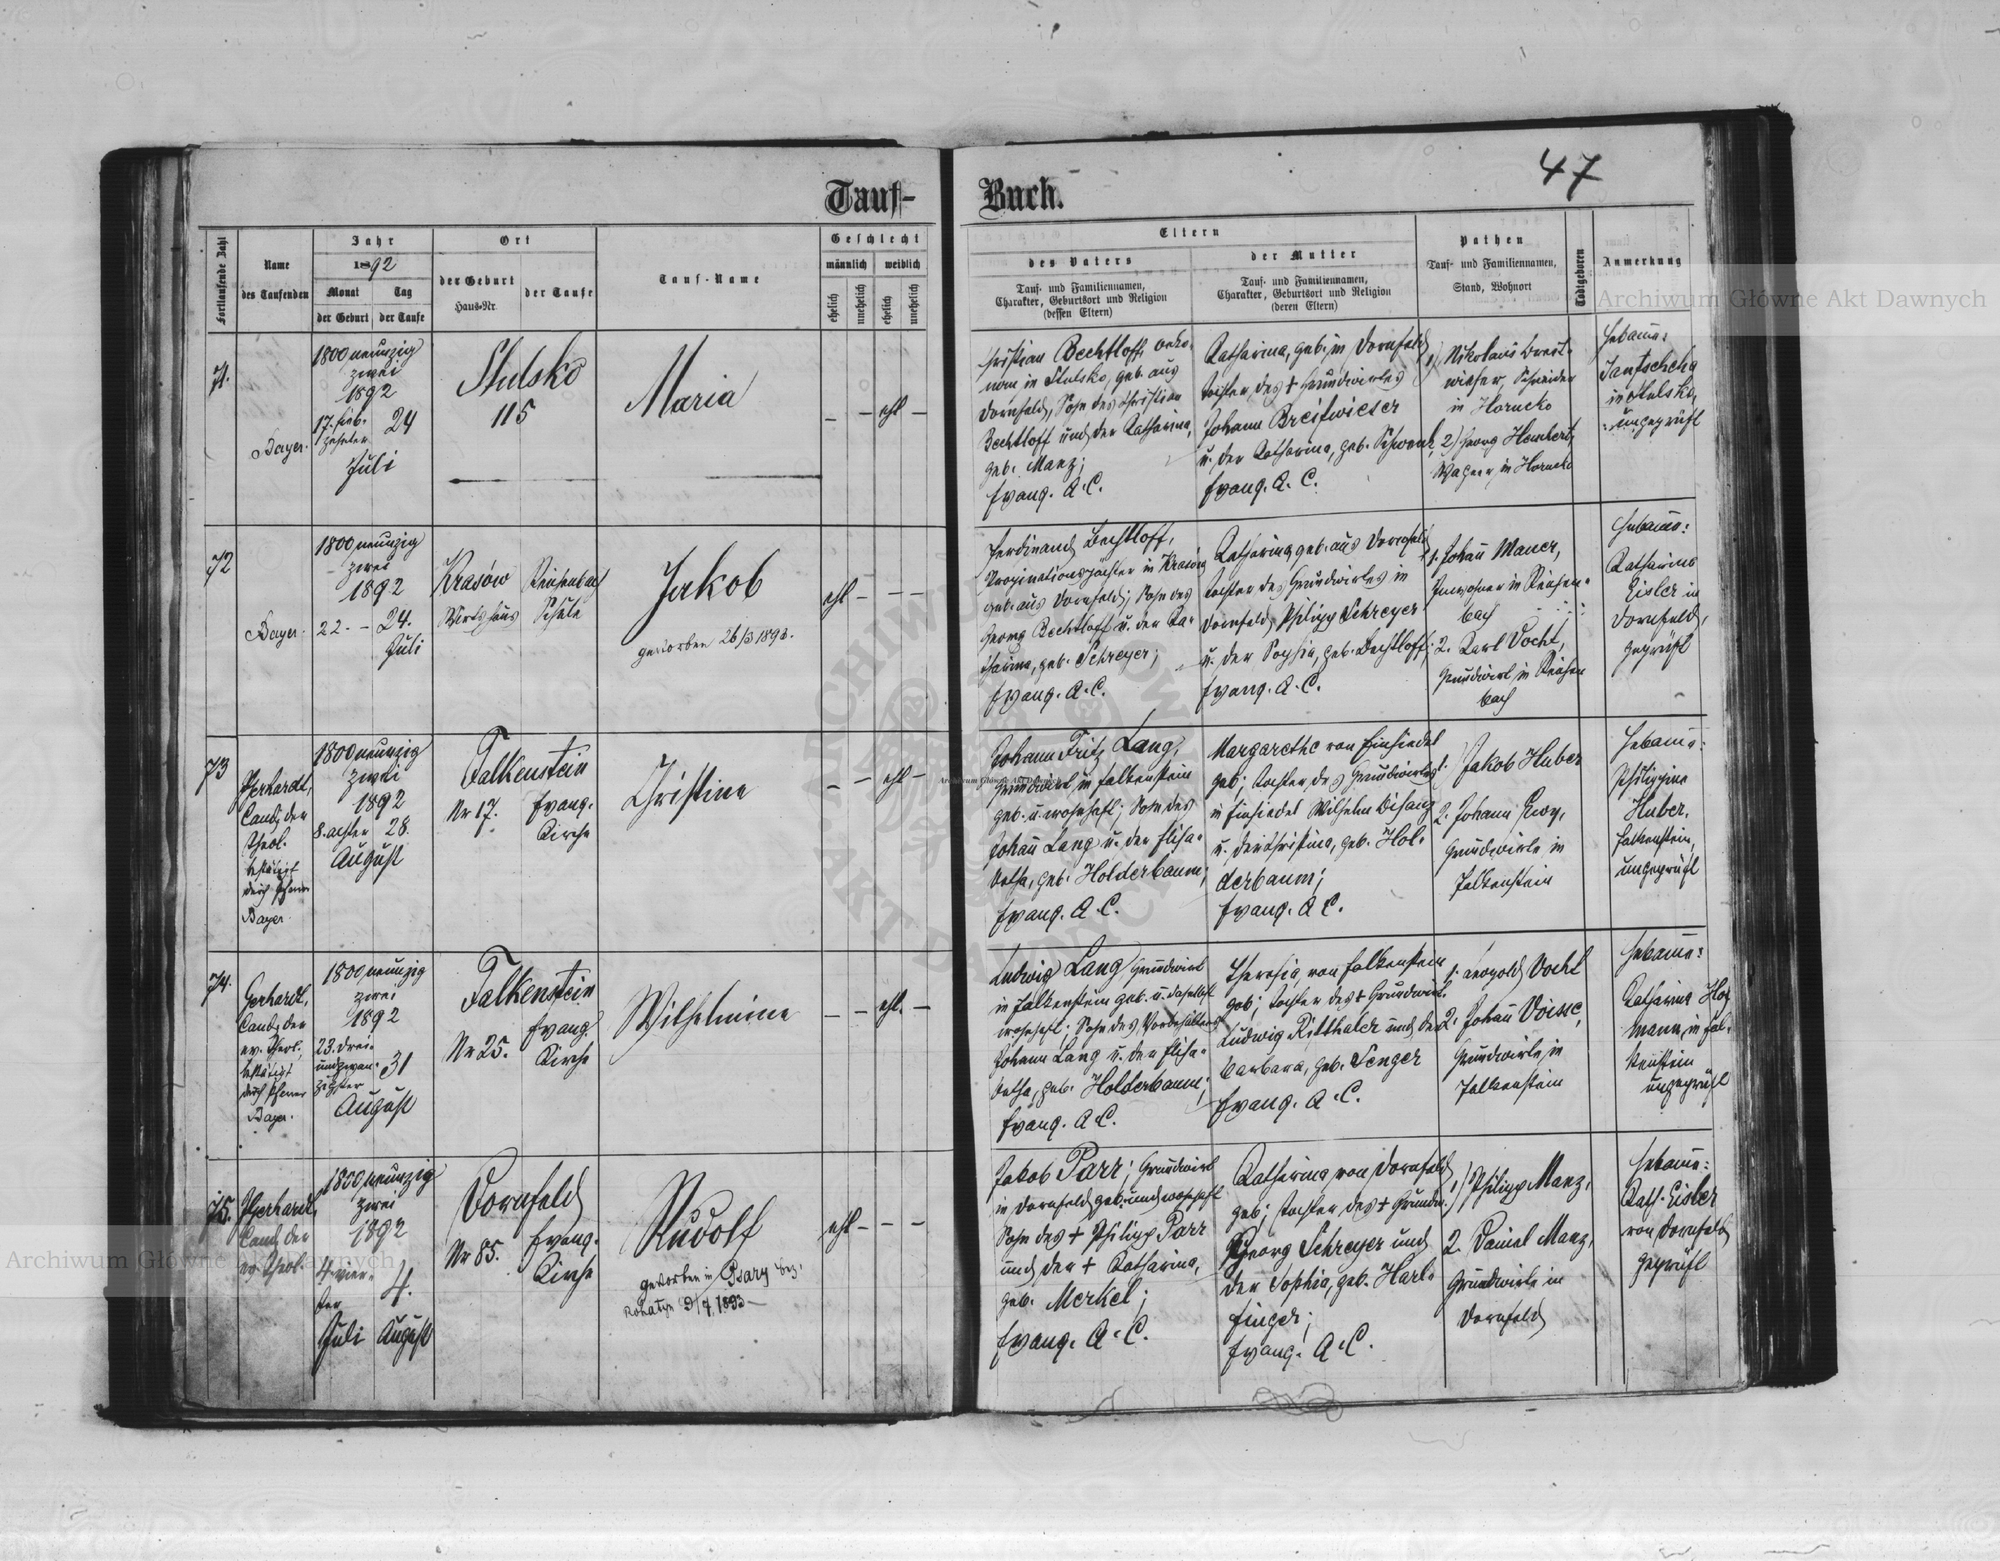 47
Tauf-Buch.
Fortlaufende Zahl
Name
des Taufenden
Jahr
1892
Monat
Tag
der Geburt
der Taufe
Ort
der Geburt
Haus-Nr.
der Taufe
Tauf-Name
Geschlecht
männlich
weiblich
ehelich
unehelich
ehelich
unehelich
Eltern
des Vaters
Tauf- und Familiennamen,
Charakter, Geburtsort und Religion
(dessen Eltern)
der Mutter
Tauf- und Familiennamen,
Charakter, Geburtsort und Religion
(deren Eltern)
Pathen
Tauf- und Familiennamen,
Stand, Wohnort
Todtgeboren
Anmerkung
71.
Bayer.
1800 neunzig
zwei
1892
17. sieb-
zehnter
24
Juli
Stulsko
115
Maria
– – ehl –
Christian Bechtloff, Oeko-
nom in Stulsko, geb. aus
Dornfeld, Sohn des Christian
Bechtloff und der Katharina,
geb. Manz;
Evang. A. C.
Katharina, geb. in Dornfeld
Tochter des + Grundwirtes
Johann Breitwieser
u. der Katharina, geb. Schwenk,
Evang. A. C.
1) Nikolaus Breit-
wieser, Schneider
in Horncko
2) Georg
Wagner, in Horncko
Hebamme:
in Stulsko,
ungeprüft
72
Bayer.
1800 neunzig
zwei
1892
22. – 24.
Juli
Krasów
Wirtshaus
Reichenbach
Schule
Jakob
gestorben 26/3 1893.
ehl – – –
Ferdinand Bechtloff,
Propinationspächter in Krasów
geb. aus Dornfeld; Sohn des
Georg Bechtloff u. der Ka-
tharina, geb. Schreyer;
Evang. A. C.
Katharina, geb. aus Dornfeld
Tochter des Grundwirtes in
Dornfeld Philipp Schreyer
u. der Sophia, geb. Bechtloff;
Evang. A. C.
1. Johann Mauer,
Inwohner in Reichen-
bach
2. Karl Vocht,
Grundwirt in Reichen
bach
Hebamme:
Katharina
Eisler in
Dornfeld,
geprüft
73
Gerhardt,
Cand. der
Theol.
bestätigt
durch Pfarrer
Bayer
1800 neunzig
zwei
1892
8. achter 28.
August
Falkenstein
Nr 17.
Evang.
Kirche
Christine
– – ehl –
Johann Fritz Lang,
Grundwirt in Falkenstein
geb. u. wohnhaft; Sohn des
Johann Lang u. der Elisa-
betha, geb. Holderbaum;
Evang. A. C.
Margarethe von Einsiedel
geb; Tochter des Grundwirtes
in Einsiedel Wilhelm Bisanz
u. der Christina, geb. Hol-
derbaum;
Evang. A C.
1. Jakob Huber
2. Johann
Grundwirte in
Falkenstein
Hebamme:
Philippine
Huber,
Falkenstein,
ungeprüft
74.
Gerhardt,
Cand. der
ev. Theol.,
bestätigt
durch Pfarrer
Bayer.
1800 neunzig
zwei
1892
23. drei-
undzwan-
zigster
31
August
Falkenstein
Nr 25.
Evang.
Kirche
Wilhelmine
– – ehl. –
Ludwig Lang Grundwirt
in Falkenstein geb. u. daselbst
wohnhaft; Sohn des Vorbehalters
Johann Lang u. der Elisa-
betha, geb. Holderbaum;
Evang. A C.
Theresia, von Falkenstein
geb; Tochter des + Grundwirt.
Ludwig Ritthaler und der
Barbara, geb. Senger
Evang. A. C.
1. Leopold Vocht
2. Johann Voisse,
Grundwirte in
Falkenstein
Hebamme:
Katharina Hof
mann, in Fal-
kenstein
ungeprüft
75.
Gerhardt,
Cand. der
ev. Theol.
1800 neunzig
zwei
1892
4. vier-
ter
4.
Juli August
Dornfeld
Nr 85.
Evang.
Kirche
Rudolf
gestorben in Psary bez.
Rohatyn 9/7 1893 –
ehl – – –
Jakob Parr; Grundwirt
in Dornfeld geb. und wohnhaft
Sohn des + Philipp Parr
und der + Katharina,
geb. Merkel;
Evang. A. C.
Katharina von Dornfeld
geb; Tochter des + Grundw.
Georg Schreyer und
der Sophia, geb. Harl-
finger;
Evang. A. C.
1) Philipp Manz,
2. Daniel Manz,
Grundwirte in
Dornfeld
Hebamme:
Kath. Eisler
von Dornfeld
geprüft
Archiwum Główne Akt Dawnych
Archiwum Główne Akt Dawnych
Archiwum Główne Akt Dawnych